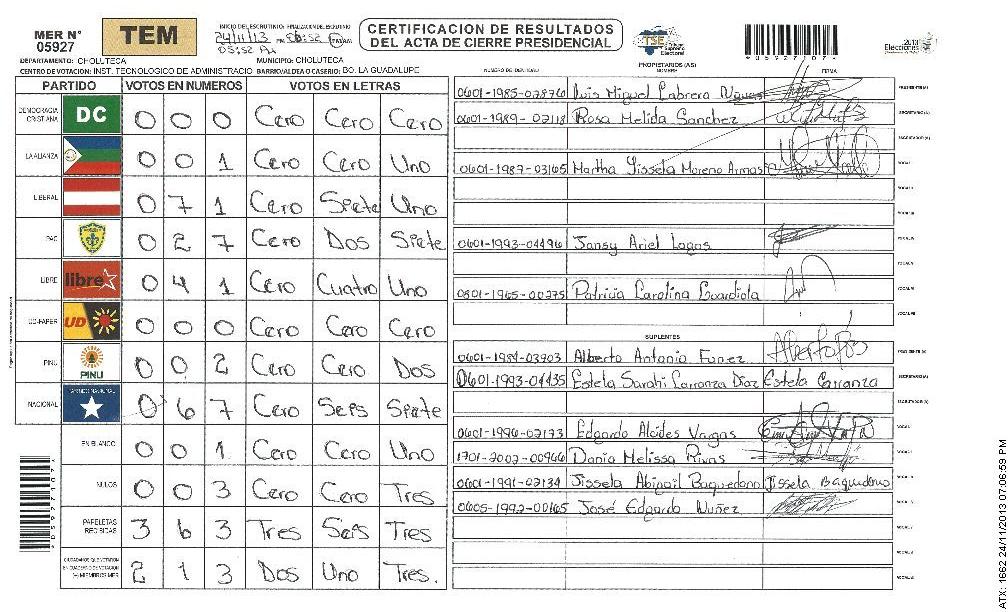 MER N° 05927
TEM
INICIO DEL ESCRUTINIO: FINALIZACION DEL ESCRUTINIO
24/11/13
05:52
CERTIFICACION DE RESULTADOS
DEL ACTA DE CIERRE PRESIDENCIAL
TSE Tribunal Supremo Electoral
*059271071*
2013 Elecciones
DEPARTAMENTO: CHOLUTECA MUNICIPIO: CHOLUTECA
CENTRO DE VOTACIÓN: INST. TECNOLOGICO DE ADMINISTRACIO BARRIO/ALDEA O CASERIO: BO. LA GUADALUPE
PARTIDO VOTOS EN NUMEROS VOTOS EN LETRAS
DEMOCRACIA CRISTIANA DC 0 0 0 Cero Cero Cero
LA ALIANZA 0 0 1 Cero Cero Uno
LIBERAL 0 7 1 Cero Siete Uno
PAC 0 2 7 Cero Dos Siete
LIBRE libre 0 4 1 Cero Cuatro Uno
UD-FAPER UD 0 0 0 Cero Cero Cero
PINU PINU 0 0 2 Cero Cero Dos
NACIONAL PARTIDO NACIONAL 0 6 7 Cero Seis Siete
EN BLANCO 0 0 1 Cero Cero Uno
NULOS 0 0 3 Cero Cero Tres
PAPELETAS RECIBIDAS 3 6 3 Tres Seis Tres
CIUDADANOS QUE VOTARON EN CUADERNO DE VOTACION (+) MIEMBROS MER 2 1 3 Dos Uno Tres.
NUMERO DE IDENTIDAD PROPIETARIOS (AS) NOMBRE FIRMA
0601-1985-02876 Luis Miguel Cabrera PRESIDENTE (A)
0601-1989-02118 Rosa Melida Sanchez SECRETARIO (A)
ESCRUTADOR (A)
0601-1987-03165 Martha Jissela Moreno Armas VOCAL I
0601-1993-04496 Jansy Ariel Lagos
0801-1965-00275 Patricia Carolina Guardiola
SUPLENTES
0601-1984-03903 Alberto Antonio Funez PRESIDENTE (A)
0601-1993-04435 Estela Sarahi Carranza Diaz Estela Carranza SECRETARIO (A)
ESCRUTADOR (A)
0601-1996-02173 Edgardo Alcides Vargas
1701-2002-00966 Dania Melissa Rivas
0601-1991-02134 Jissela Abigail Baquedano Jissela Baquedano
0605-1992-00165 José Edgardo Nuñez
*059271071*
ATX: 1662 24/11/2013 07:06:59 PM